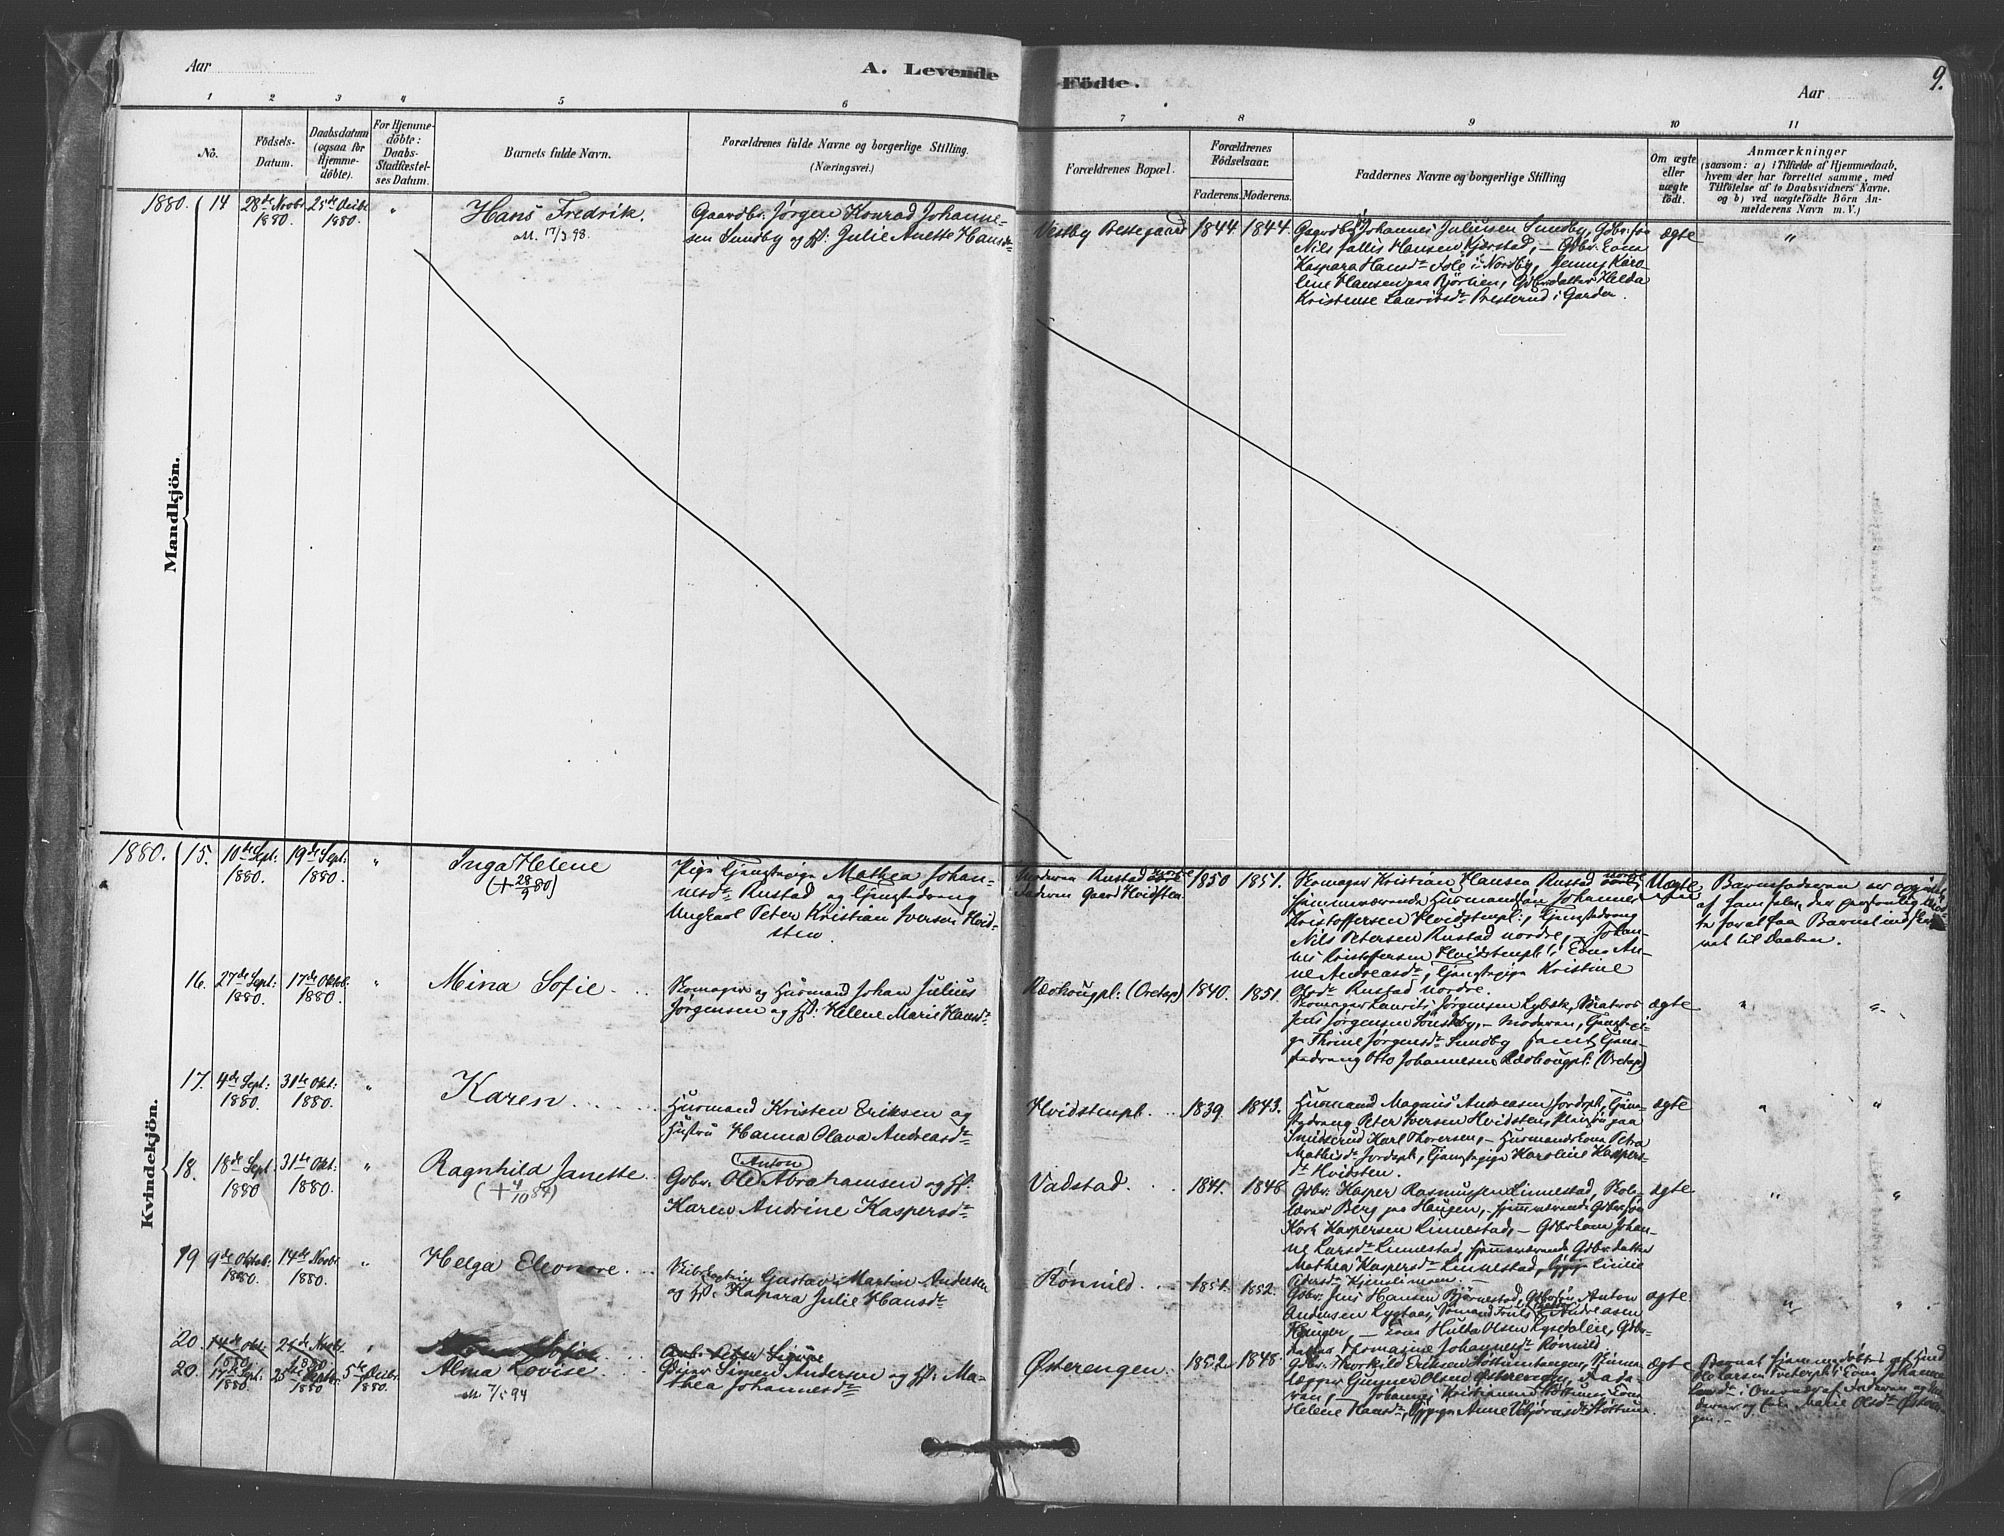 Aar
A. Levende
Födte.
Aar
9.
1 2 3 4 5 6 7 8 9 10 11
No.
Födsels-
Datum.
Daabsdatum
(ogsaa för
Hjemme-
döbte).
For Hjemme-
döbte:
Daabs-
Stadfæstel-
ses Datum.
Barnets fulde Navn.
Forældrenes fulde Navne og borgerlige Stilling.
(Næringsvei.)
Forældrenes Bopæl.
Forældrenes
Födselsaar.
Faderens. Moderens.
Faddernes Navne og borgerlige Stilling
Om ægte
eller
uægte
födt.
Anmærkninger
(saasom: a) i Tilfælde af Hjemmedaab,
hvem der har forrettet samme, med
Tilföielse af to Daabsvidners Navne.
og b) ved uægtefödte Börn An-
melderens Navn m. V.)
Mandkjön.
1880. 14 28de Novbr 1880. 25de Decbr 1880. "
Hans Fredrik.
M. 17/3 98.
Gaardbr. Jørgen Konrad Johanne-
sen Sundby og H: Julie Anette Hansdr
Vestby Prestegaard 1844 1844
Gaardbr Johannes Juliussen Sundby, Gdbr. søn
Nils Hansen Kjærstad, – Gdbr. Kona
Kaspara Hansdr i Nordby, Jenny Karo-
line Hansen paa Bjørlien, Gdbrdatter Helda
Kristense Lauritsdr Presterud i Garder.
ægte "
Kvindekjön.
1880. 15. 10de Sept: 1880. 19de Sept: 1880. "
Inga Helene
(+ 28/9 80)
Pige Tjenestepige Mathea Johan-
nesdr Rustad og Tjenestedreng
Ungkarl Peter Kristian Iversen Hvid-
sten.
Moderen Rustad
Faderen Gaard Hvidsten
1850 1851.
Skomager Kristian Hansen Rustad nordre,
hjemmeværende Husmandssøn Johannes
Kristoffersen Hvidstenpl:, Tjenestedreng
Nils Petersen Rustad nordre, – Johan-
nes Kristoffersen Hvidstenpl: Kona An-
ne Andreasdr, Tjenestepige Kristine
Olsdr Rustad nordre.
Uægte
Barnefaderen er opgivet
af ham selv, der personlig
Barnet til Daaben.
16. 27de Sept: 1880. 17de Oktbr 1880. "
Mina Sofie
Skomager og Husmand Johan Julius
Jørgensen og H: Helene Marie Hansdr
Rødhougpl: (Oretop) 1840. 1851
Skomager Laurits Jørgensen Lybæk, Matros
Jens Jørgensen Sønsteby, – Moderen, Tjenestepi-
ge Thrine Jørgensdr Sundby samt Tjene-
stedreng Otto Johannesen Rødhougpl: (Oretop)
ægte " "
17. 4de Sept: 1880. 31te Okt: 1880. "
Karen
Husmand Kristen Eriksen og
Hustru Hanna Olava Andreasdr
Hvidstenpl. 1839. 1843.
Husmand Magnus Andreasen Jordepl, Tjene-
stedreng Peter Iversen Hvidsten, paa
Smiserud Karl Thoresen, – Husmands Kona Petra
Mathisdr Jordepl, Tjenestepige Karoline Kaspers-
dr Hvidsten.
ægte " "
18. 18de Sept 1880 31te Okt: 1880. "
Ragnhild Janette
(+ 4/10 84)
Gdbr. Ole Anton Abrahamsen og H:
Karen Andrine Kaspersdr
Vadstad. 1841. 1848
Gdbr. Kasper Rasmussen Linnestad, Skole-
lærer Berg paa Haugen, hjemmeværende Gdbrsøn
Karl Kaspersen Linnestad, – Gdbrkona Johan-
ne Larsdr Linnestad, hjemmeværende Gdbr.datter
Mathea Kaspersdr Linnestad,
ægte " "
19 9de Oktob: 1880. 14de Novbr 1880. "
Helga Eleonore
Gustav Martin Andersen
og H: Kaspara Julie Hansdr
Rønnild. 1851. 1852.
Gdbr. Jens Hansen Bjørnestad, Gdbrsøn Anton
Andersen Rygtaas, Andreasen
– Kona Hulda Olsen Lysedalen, Gdbr-
datter Thomasine Johannesdr Rønnild
ægte " "
20. 14de Okt. 1880 21de Novbr. 1880
20. 17de Sept: 1880. 25de Septbr. 1880 5te Decbr. 1880.
Alma Lovise
M. 7/5 94
Simen Andersen og H: Ma-
thea Johannesdr
Østerengen. 1852 1848.
Gdbr. Thorkild Eriksen
Gunner Olsen Østerengen, Fade-
ren, – Johannes Kristiansens Kona
Helene Hansdr, Pige Anne
ægte
Barnet hjemmedøbt af
Kona Johanne
i Overvær af Faderen og
Marie Olsdr Østeren-
gen. –